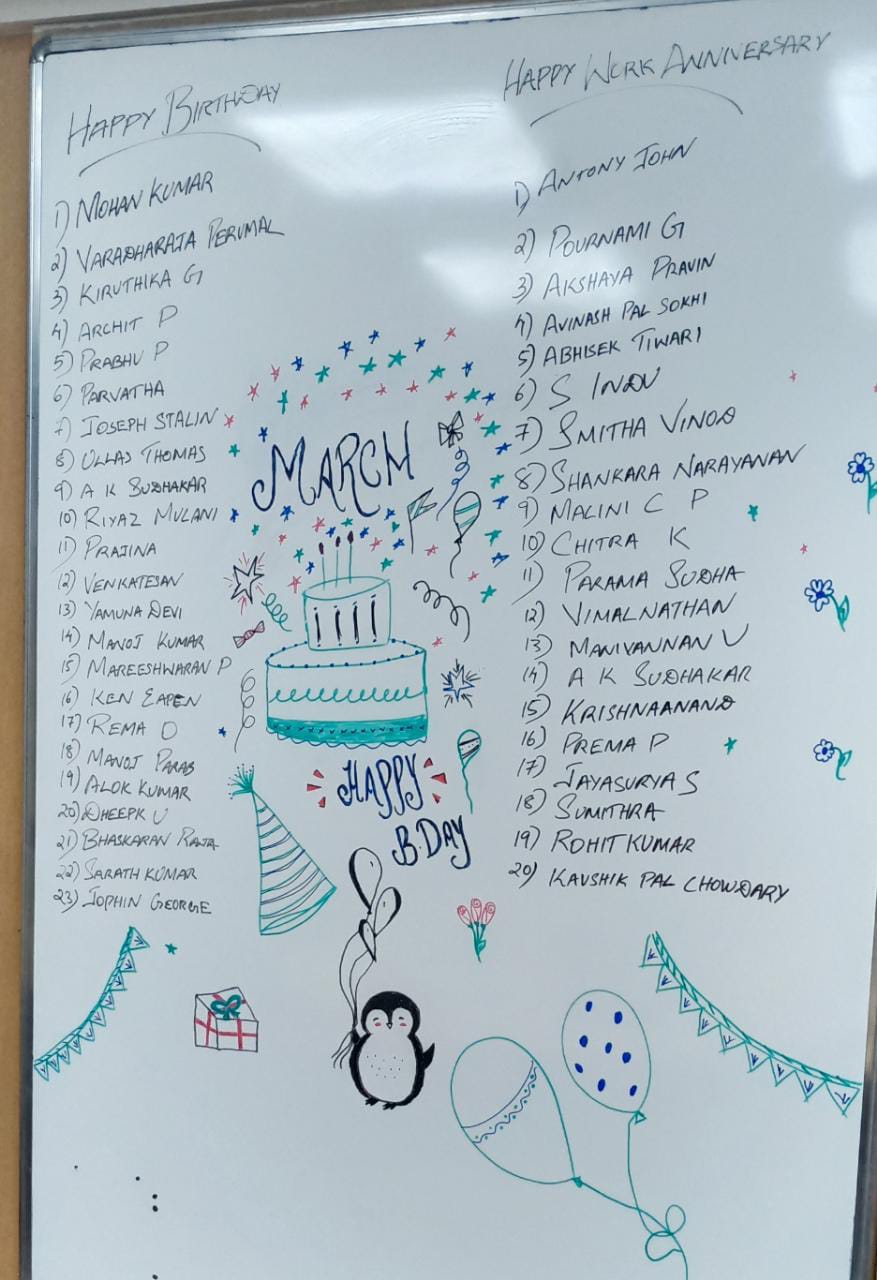 HAPPY BIRTHDAY
1) MOHAN KUMAR
2) VARADHARAJA PERUMAL
3) KIRUTHIKA G
4) ARCHIT P
5) PRABHU P
6) PARVATHA
7) JOSEPH STALIN
8) ULLAS THOMAS
9) A K SUDHAKAR
10) RIYAZ MULANI
11) PRAJINA
12) VENKATESAN
13) YAMUNA DEVI
14) MANOJ KUMAR
15) MAREESHWARAN P
16) KEN EAPEN
17) REMA D
18) MANOJ PARAB
19) ALOK KUMAR
20) DHEEPK U
21) BHASKARAN RAJA
22) SARATH KUMAR
23) JOPHIN GEORGE
MARCH
HAPPY
B.DAY
HAPPY WORK ANNIVERSARY
1) ANTONY JOHN
2) POURNAMI G
3) AKSHAYA PRAVIN
4) AVINASH PAL SOKHI
5) ABHISEK TIWARI
6) S INDU
7) SMITHA VINOD
8) SHANKARA NARAYANAN
9) MALINI C P
10) CHITRA K
11) PARAMA SUDHA
12) VIMALNATHAN
13) MANIVANNAN V
14) A K SUDHAKAR
15) KRISHNAANAND
16) PREMA P
17) JAYASURYA S
18) SUMITHRA
19) ROHIT KUMAR
20) KAUSHIK PAL CHOWDARY